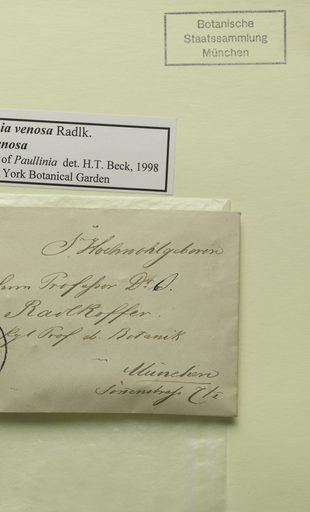 Botanische
Staatssammlung
München
ia venosa Radlk.
enosa
of Paullinia det. H.T. Beck, 1998
York Botanical Garden
S. Hochwohlgeboren
Herrn Professor Dr.
Radlkoffer.
kgl Prof d. Botanik
München
Sonnenstrasse 7/I